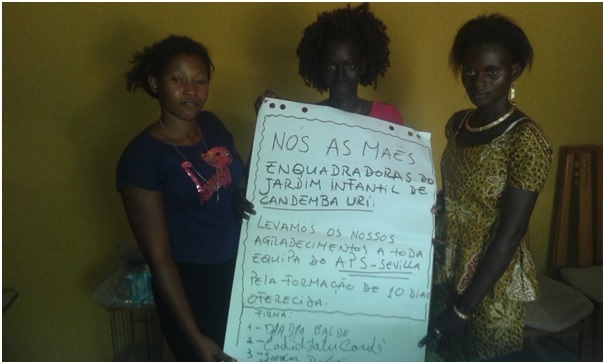 NÓS AS MAËS
ENQUADRADORAS DO
JARDIM INFANTIL DE
CANDEMBA URI:
LEVAMOS OS NOSSOS
AGRADECIMENTOS A TODA
EQUIPA DO APS-SEVILLA
PELA FORMAÇÃO DE 10 DIAS
OFERECIDA.
FIRMA:
1-
2-
3-